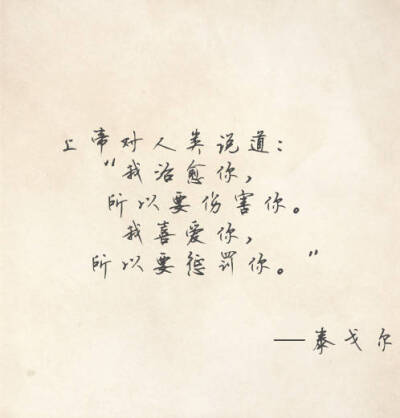 上帝对人类说道：
“我治愈你，
所以要伤害你。
我喜爱你，
所以要惩罚你。”
——泰戈尔